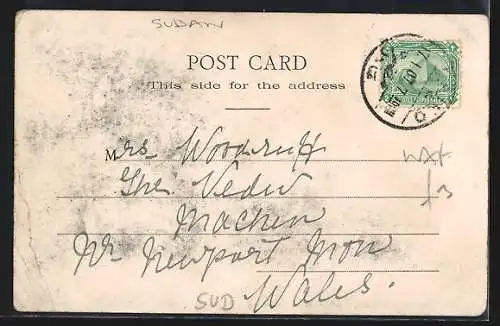 SUDAN
POST CARD
This side for the address
Mrs Woodruff
The Vedw
Machen
Nr Newport Mon
Wales.
SUD
£3